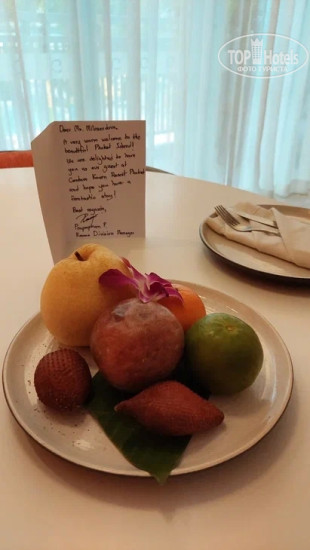 TOP Hotels
ФОТО ТУРИСТА
Dear Ms.
A very warm welcome to the
beautiful Phuket Island!
We are delighted to have
you as our guest at
Centara Karon Resort Phuket
and hope you have a
fantastic stay!
Best regards,
Rooms Division Manager